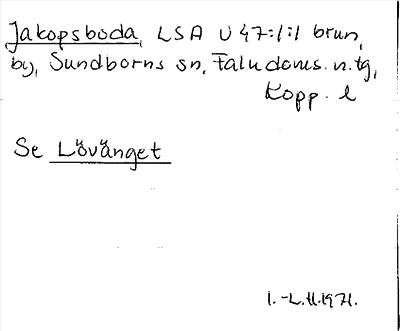 Jakopsboda, LSA U 47:1:1 brun,
by, Sundborns sn, Faludoms. n. tg,
Kopp. l
Se Lövänget
I.-L. II. 1971.